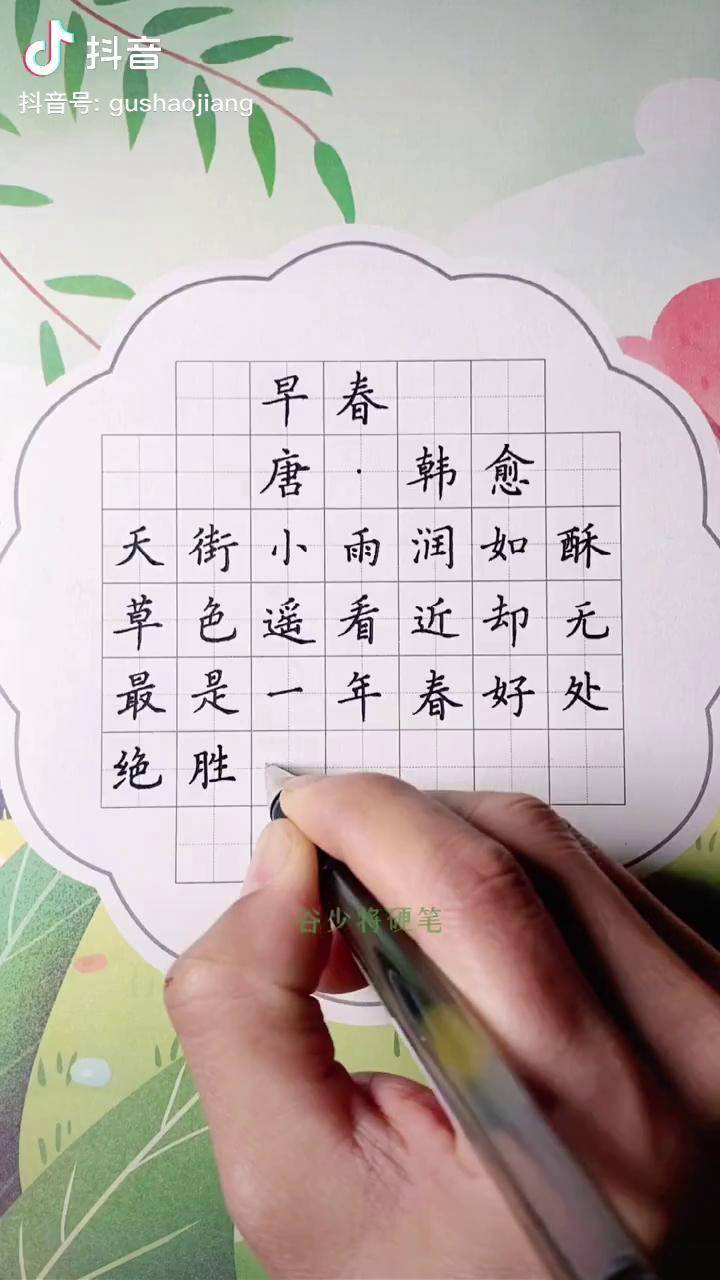 抖音
抖音号: gushaojiang
早春
唐·韩愈
天街小雨润如酥
草色遥看近却无
最是一年春好处
绝胜
谷少将硬笔